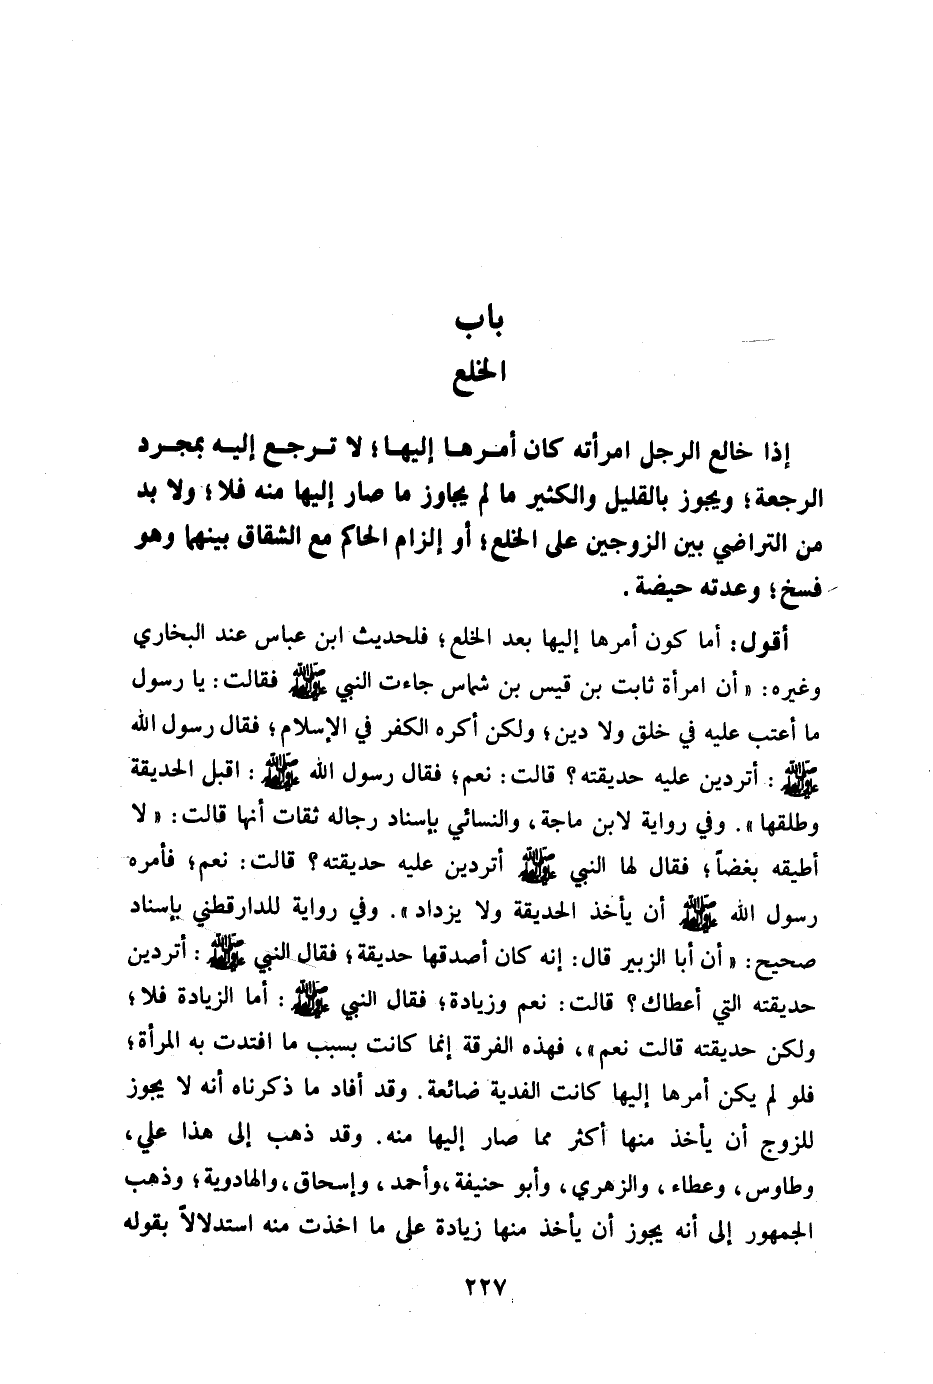 باب
الخلع
إذا خالع الرجل امرأته كان أمرها إليها؛ لا ترجع إليه بمجرد
الرجعة؛ ويجوز بالقليل والكثير ما لم يجاوز ما صار إليها منه فلا؛ ولا بد
من التراضي بين الزوجين على الخلع؛ أو إلزام الحاكم مع الشقاق بينهما وهو
فسخ؛ وعدته حيضة.
أقول: أما كون أمرها إليها بعد الخلع؛ فلحديث ابن عباس عند البخاري
وغيره: «أن امرأة ثابت بن قيس بن شماس جاءت النبي ﷺ فقالت: يا رسول
ما أعتب عليه في خلق ولا دين؛ ولكن أكره الكفر في الإسلام؛ فقال رسول الله
ﷺ : أتردين عليه حديقته؟ قالت: نعم؛ فقال رسول الله ﷺ : اقبل الحديقة
وطلقها». وفي رواية لابن ماجة، والنسائي بإسناد رجاله ثقات أنها قالت: «لا
أطيقه بغضاً؛ فقال لها النبي ﷺ أتردين عليه حديقته؟ قالت: نعم؛ فأمره
رسول الله ﷺ أن يأخذ الحديقة ولا يزداد». وفي رواية للدارقطني بإسناد
صحيح: «أن أبا الزبير قال: إنه كان أصدقها حديقة؛ فقال النبي ﷺ : أتردين
حديقته التي أعطاك؟ قالت: نعم وزيادة؛ فقال النبي ﷺ : أما الزيادة فلا؛
ولكن حديقته قالت نعم»، فهذه الفرقة إنما كانت بسبب ما افتدت به المرأة؛
فلو لم يكن أمرها إليها كانت الفدية ضائعة. وقد أفاد ما ذكرناه أنه لا يجوز
للزوج أن يأخذ منها أكثر مما صار إليها منه. وقد ذهب إلى هذا علي،
وطاوس، وعطاء، والزهري، وأبو حنيفة،وأحمد، وإسحاق،والهادوية؛ وذهب
الجمهور إلى أنه يجوز أن يأخذ منها زيادة على ما اخذت منه استدلالاً بقوله
٢٢٧